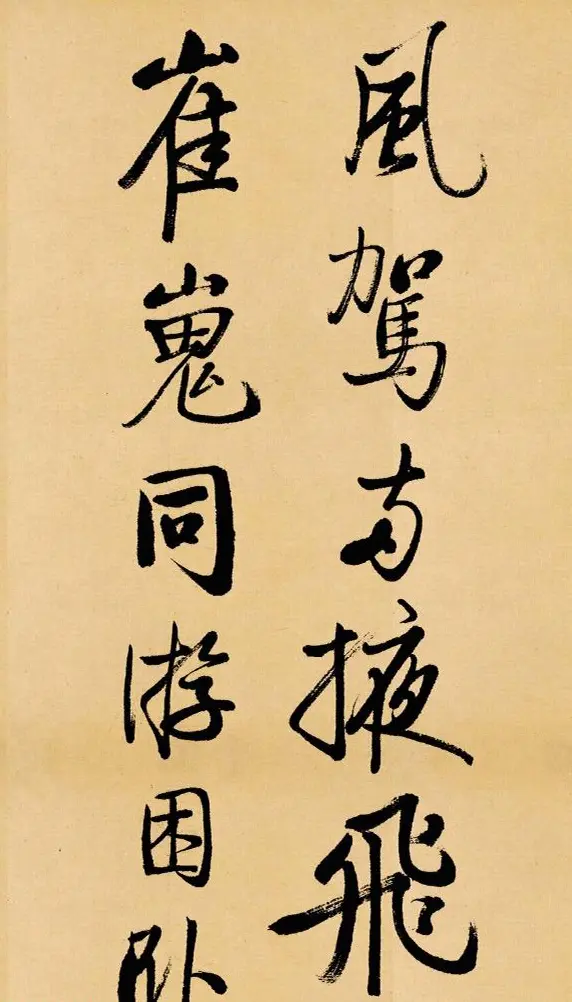 風駕兩掖飛
崔嵬同游困卧